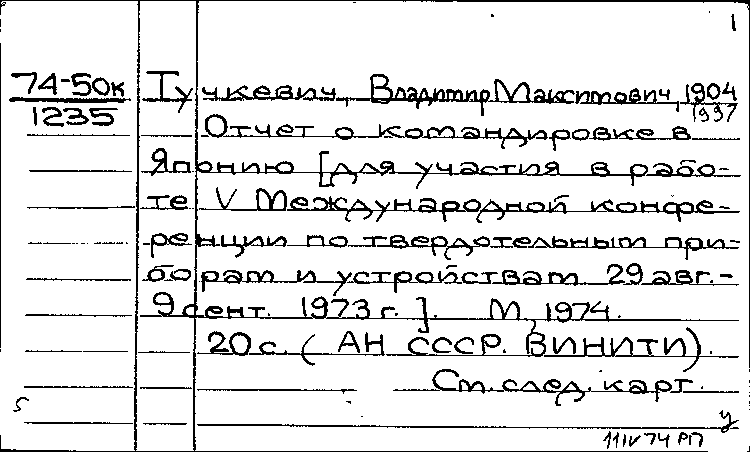 1
74-50к
1235
Тучкевич, Владимир Максимович, 1904
1937
Отчет о командировке в
Японию [для участия в рабо-
те V Международной конфе-
ренции по твердотельным при-
борам и устройствам 29 авг.-
9 сент. 1973 г.]. М, 1974.
20 с. (АН СССР. ВИНИТИ).
См. след. карт.
5
у
11 IV 74 РП